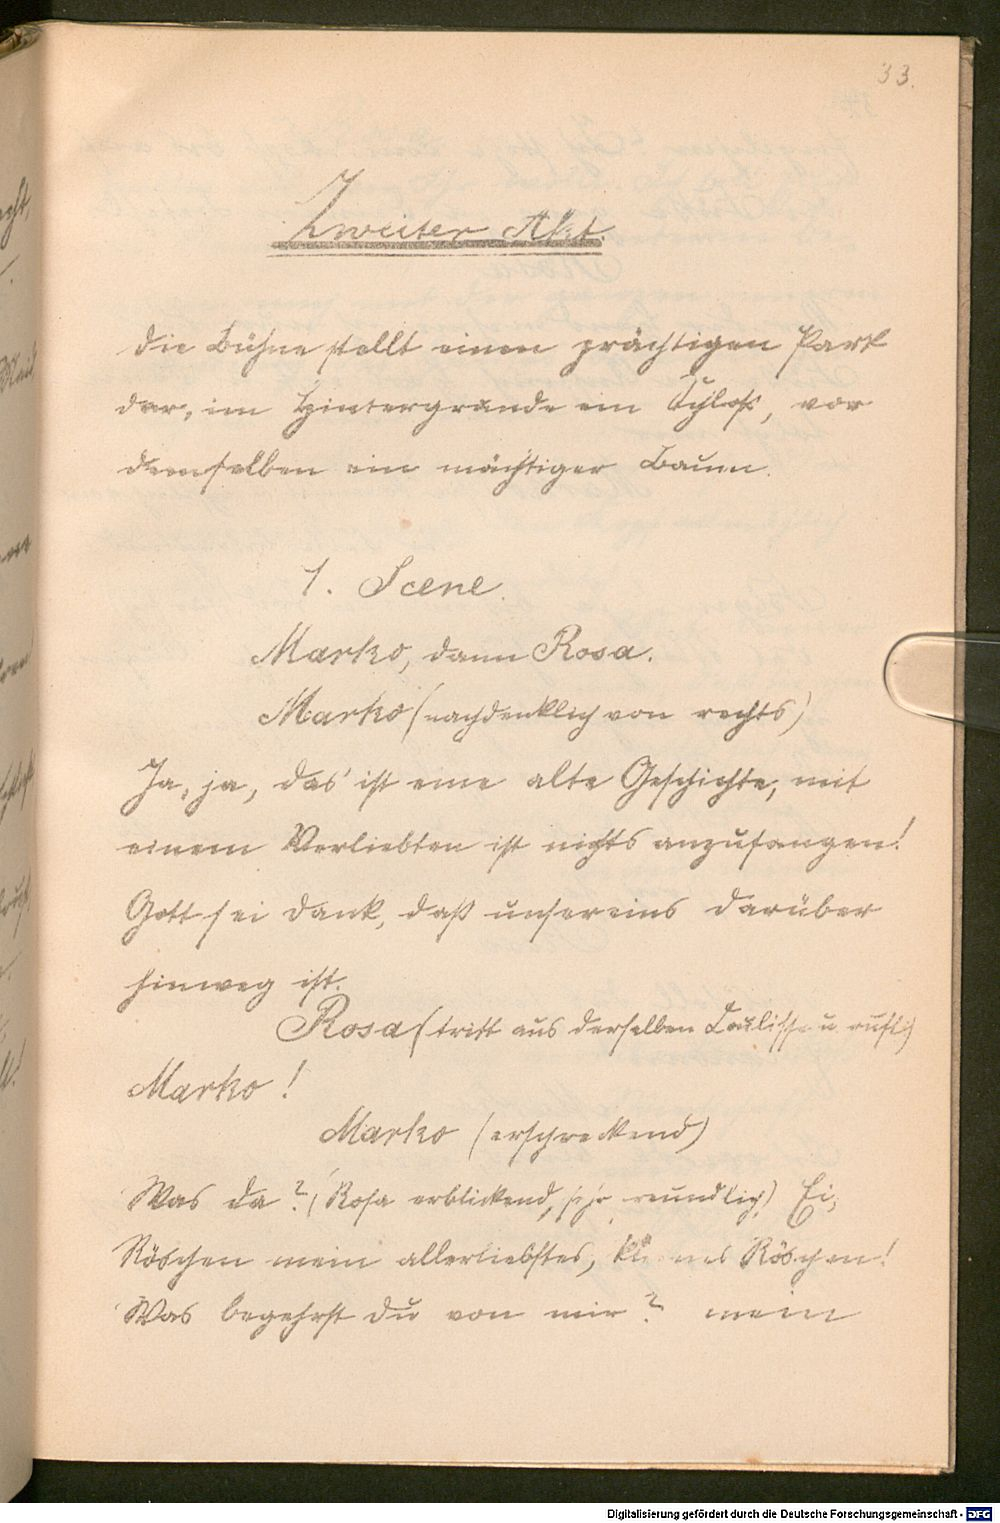 33.
Zweiter Akt.
Die Bühne stellt einen prächtigen Park
dar, im Hintergrunde ein Schloß, vor
demselben ein mächtiger Baum.
1. Scene.
Marko, dann Rosa.
Marko (nachdenklich von rechts)
Ja, ja, das ist eine alte Geschichte, mit
einem Verliebten ist nichts anzufangen!
Gott sei Dank, daß unsereins darüber
hinweg ist.
Rosa (tritt aus derselben Coulisse u. ruft)
Marko!
Marko (erschreckend)
Was da? (Rosa erblickend, sehr freundlich) Ei,
Röschen mein allerliebstes, kleines Röschen!
Was begehrst du von mir? mein
Digitalisierung gefördert durch die Deutsche Forschungsgemeinschaft - DFG